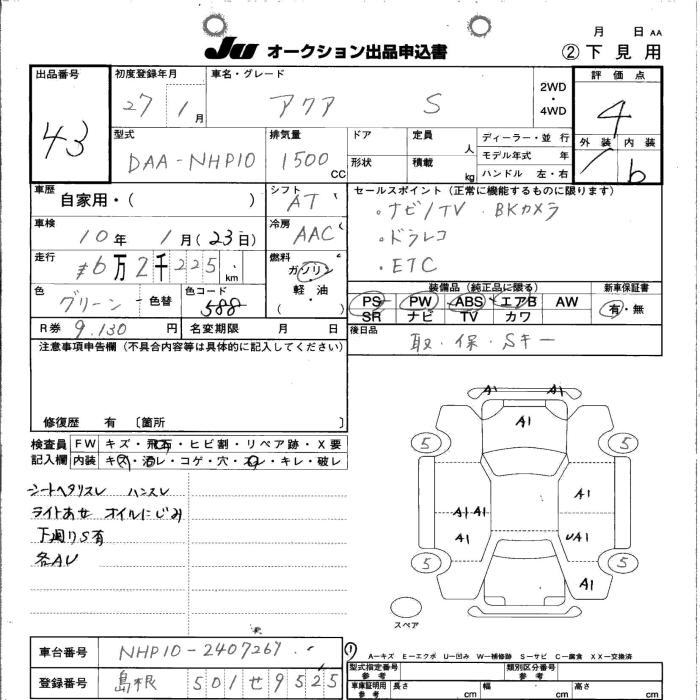 月 日 AA
JU オークション出品申込書 ②下見用
出品番号 初度登録年月 車名・グレード 評価点
43 27 1月 アクア S 2WD・4WD 4
型式 排気量 ドア 定員 人 ディーラー・並行 外装 内装
DAA-NHP10 1500 CC 形状 積載 kg モデル年式 年 b
ハンドル 左・右
車歴 シフト セールスポイント(正常に機能するものに限ります)
自家用・( ) AT ・ナビ/TV ・BKカメラ
車検 冷房 ・ドラレコ
10年 1月(23日) AAC ・ETC
走行 燃料
6万2千225 km ガソリン
軽・油
( )
色 色コード 装備品(純正品に限る) 新車保証書
グリーン 色替 588 PS PW ABS エアB AW 有・無
SR ナビ TV カワ
R券 9.130 円 名変期限 月 日 後日品
取・保・Sキー
注意事項申告欄(不具合内容等は具体的に記入してください)
修復歴 有 〔箇所 〕
検査員 FW キズ・飛石・ヒビ割・リペア跡・X要
記入欄 内装 キズ・汚レ・コゲ・穴・スレ・キレ・破レ
シートヘタリスレ ハンスレ
ライトあせ オイルにじみ
下廻りS有
各AU
A1 A1
A1
5 5
A1
A1 A1
A1 UA1
5 5
A1
スペア
A−キズ E−エクボ U−凹み W−補修跡 S−サビ C−腐食 XX−交換済
車台番号 NHP10-2407267
登録番号 島根 501せ9525
型式指定番号 参考 類別区分番号 参考
車庫証明用 参考 長さ cm 幅 cm 高さ cm